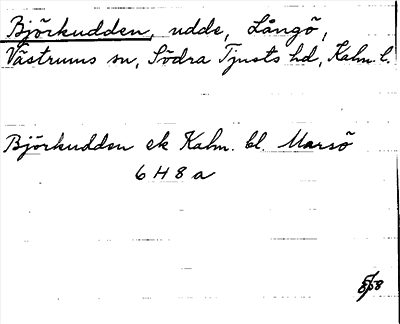 Björkudden, udde, Långö,
Västrums sn, Södra Tjusts hd, Kalm. l.
Björkudden ek Kalm. bl. Marsö
6 H 8 a